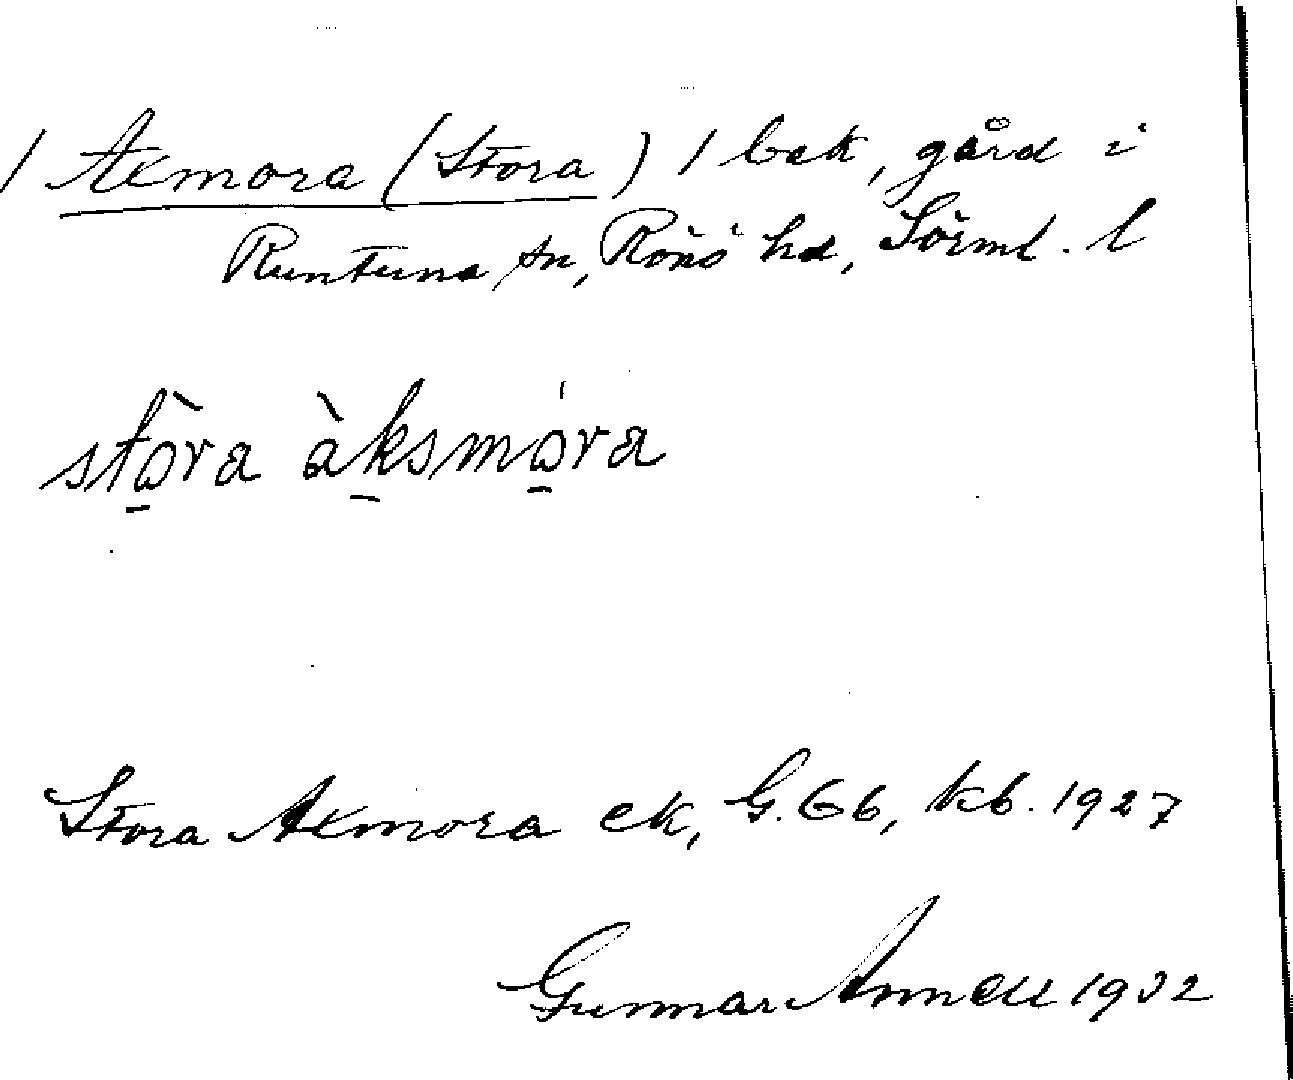 / Axmora (Stora) / bek, gård i
Runtuna sn, Rönö hd, Sörml. l
stòra àksmóra
Stora Axmora ek, G. Gb, kb. 1927
Gunnar Annell 1932